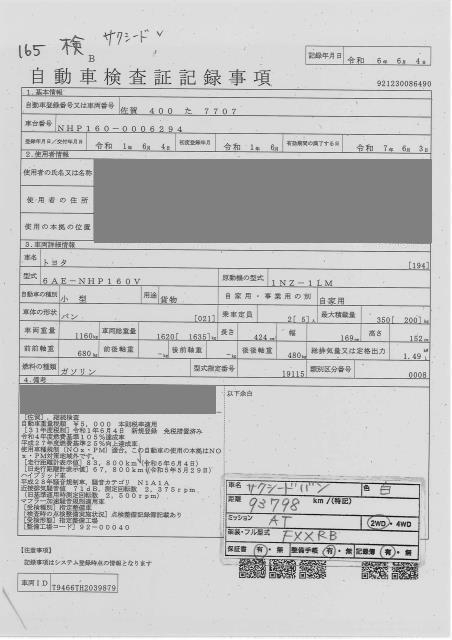 165 検 サクシード V
B
記録年月日 令和 6年 6月 4日
自動車検査証記録事項
921230086490
1.基本情報
自動車登録番号又は車両番号 佐賀 400 た 7707
車台番号 NHP160-0006294
登録年月日/交付年月日 令和 1年 6月 4日 初度登録年月 令和 1年 6月 有効期間の満了する日 令和 7年 6月 3日
2.使用者情報
使用者の氏名又は名称
使用者の住所
使用の本拠の位置
3.車両詳細情報
車名 トヨタ [194]
型式 6AE-NHP160V 原動機の型式 1NZ-1LM
自動車の種別 小型 用途 貨物 自家用・事業用の別 自家用
車体の形状 バン [021] 乗車定員 2[ 5]人 最大積載量 350[ 200]kg
車両重量 1160kg 車両総重量 1620[ 1635]kg 長さ 424cm 幅 169cm 高さ 152cm
前前軸重 680kg 前後軸重 -kg 後前軸重 -kg 後後軸重 480kg 総排気量又は定格出力 1.49L
燃料の種類 ガソリン 型式指定番号 19115 類別区分番号 0008
4.備考
以下余白
[佐賀],継続検査
自動車重量税額 ¥5,000 本則税率適用
[31年度税制]令和1年6月4日 新規登録 免税措置済み
令和4年度燃費基準105%達成車
平成27年度燃費基準25%向上達成車
使用車種規制(NOx・PM)適合。この自動車の使用の本拠はNO
x・PM対策地域外です。
[走行距離計表示値]83,800km(令和6年6月4日)
[旧走行距離計表示値]67,800km(令和5年5月29日)
ハイブリッド車
平成28年騒音規制車、騒音カテゴリ N1A1A
近接排気騒音値 71dB、測定回転数 2,375rpm
(旧基準適用時測定回転数 2,500rpm)
マフラー加速騒音規制適用車
[受検種別]指定整備車
[検査時の点検整備実施状況]点検整備記録簿記載あり
[受検形態]指定整備工場
[整備工場コード]92-00040
車名 サクシードバン 色 白
距離 93798 km/(特記)
ミッション AT 2WD・4WD
架装・フル型式 FXXRB
保証書 有・無 整備手帳 有・無 記録簿 有・無
【注意事項】
記録事項はシステム登録時点の情報となります
車両ID T9466TH2039879